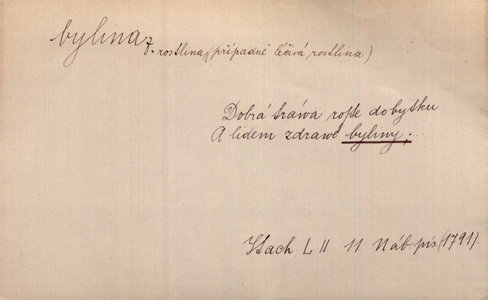 bylina, f. rostlina, (případně léčivá rostlina)
Dobrá tráwa roste dobytku
A lidem zdrawé byliny;..
Stach. L II 11 Náb. pís (1791).